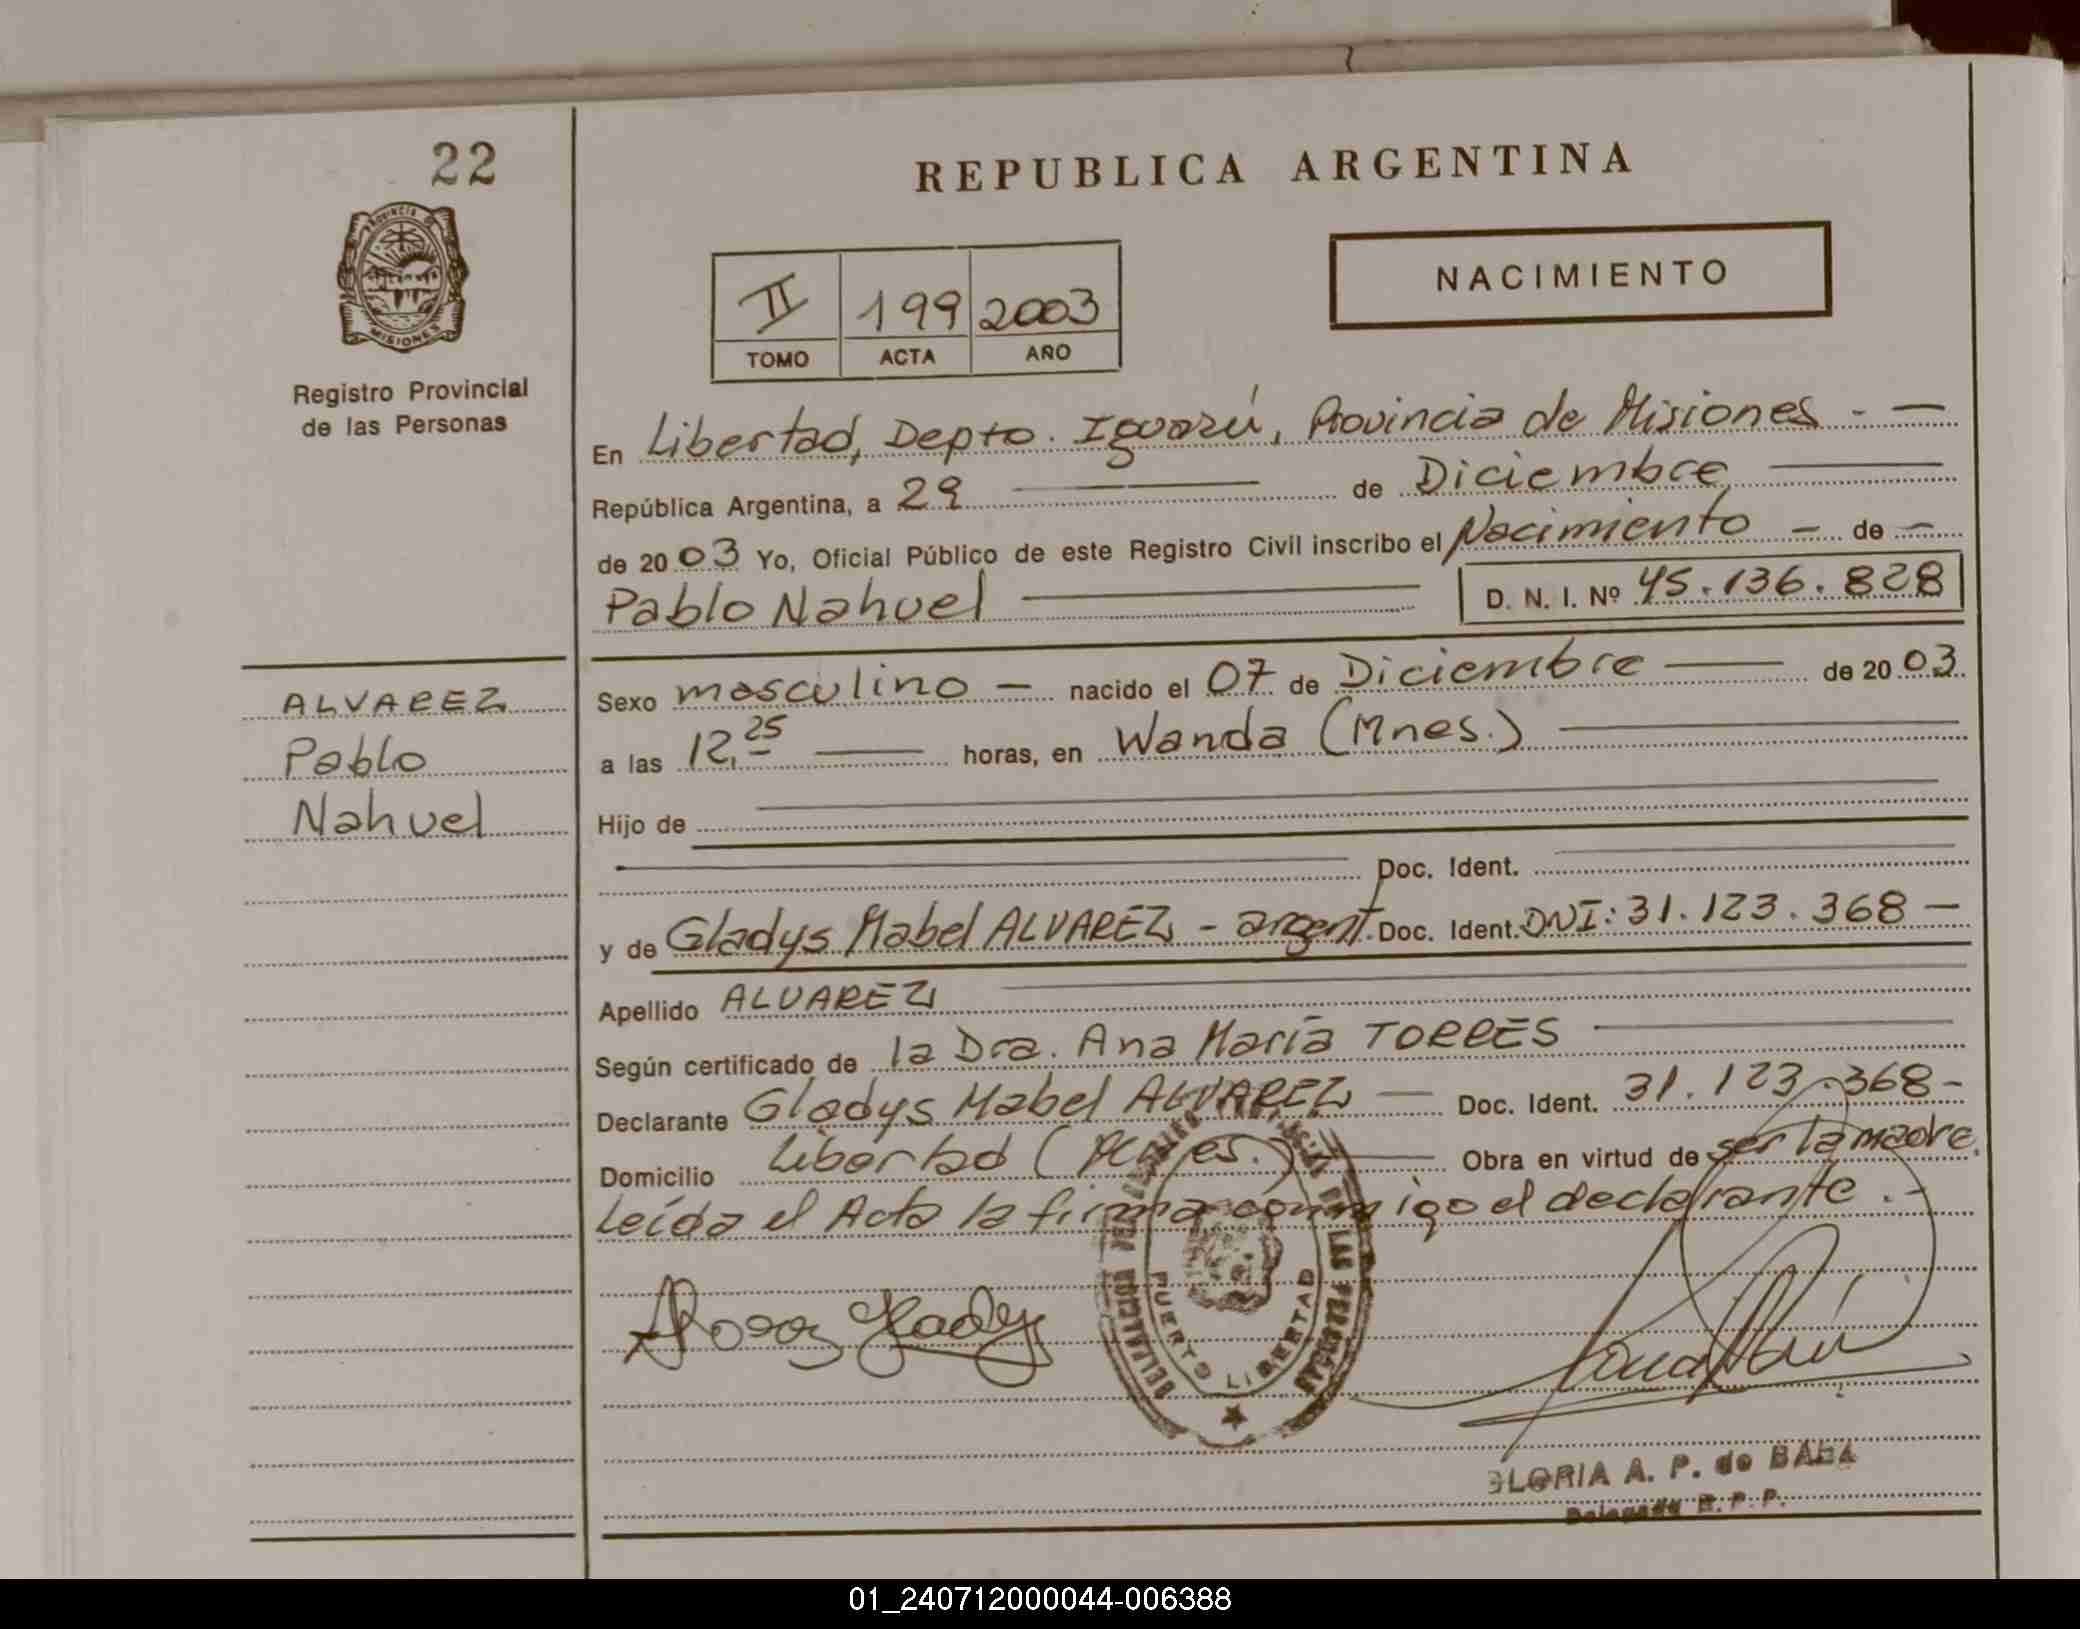 22
REPUBLICA ARGENTINA
PROVINCIA DE
MISIONES
Registro Provincial
de las Personas
NACIMIENTO
II 199 2003
TOMO ACTA AÑO
En Libertad, Depto. Iguazú, Provincia de Misiones . —
República Argentina, a 29 — de Diciembre —
de 20 03 Yo, Oficial Público de este Registro Civil inscribo el Nacimiento — de —
Pablo Nahuel — D. N. I. Nº 45.136.828
ALVAREZ
Pablo
Nahuel
Sexo masculino — nacido el 07 de Diciembre — de 20 03
a las 12,25 — horas, en Wanda (Mnes.) —
Hijo de —
— Doc. Ident. —
y de Gladys Mabel ALVAREZ - argent. Doc. Ident. DNI: 31.123.368 —
Apellido ALVAREZ —
Según certificado de la Dra. Ana María TORRES —
Declarante Gladys Mabel ALVAREZ — Doc. Ident. 31.123.368 -
Domicilio Libertad (Mnes.) — Obra en virtud de ser la madre.
Leída el Acta la firma conmigo el declarante . -
Alvarez Gladys
PUERTO LIBERTAD
DE LAS PERSONAS
GLORIA A. P. de BAEZ
Delegada R. P. P.
01_240712000044-006388